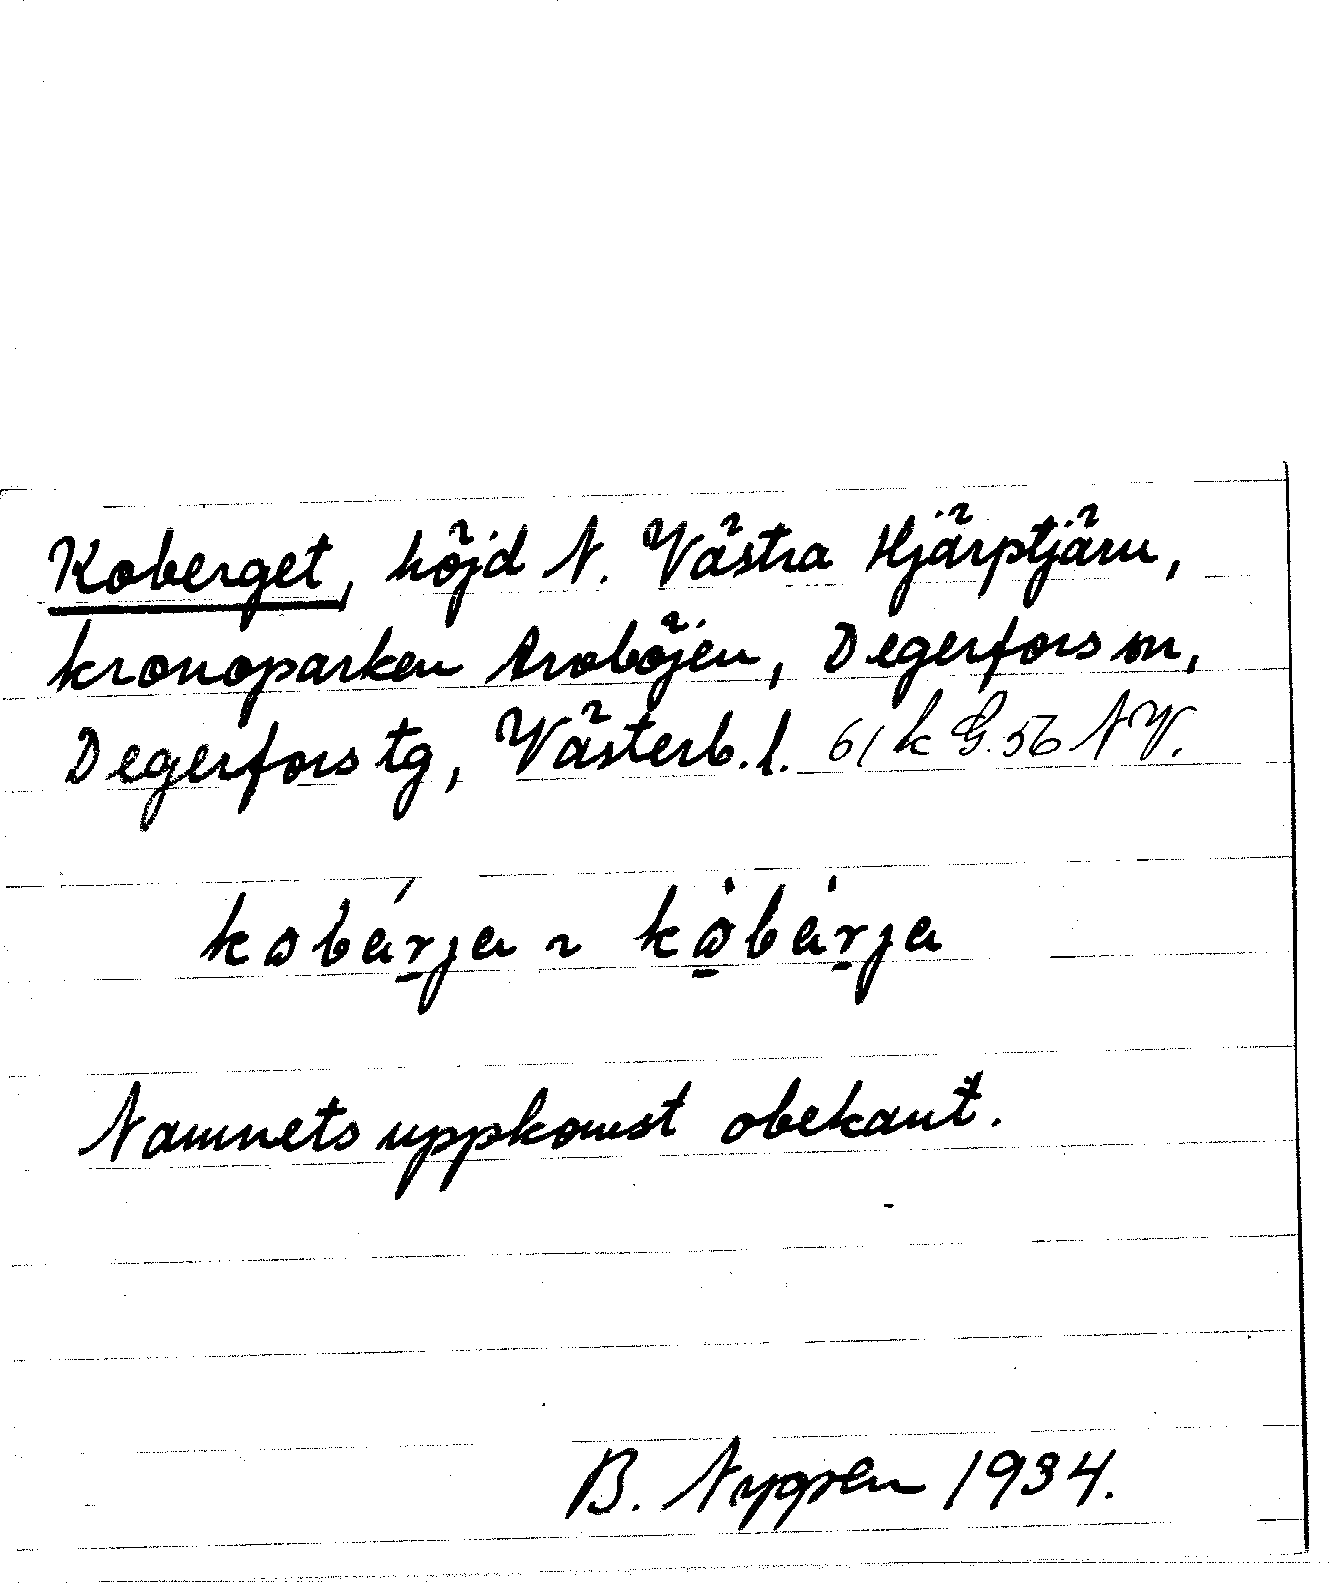 Koberget, höjd N. Västra Hjärptjärn,
kronoparken Aroböjen, Degerfors sn,
Degerfors tg, Västerb. l. 61 k G. 56 NV.
kobárja ~ kòbàrja
Namnets uppkomst obekant.
B. Nygren 1934.